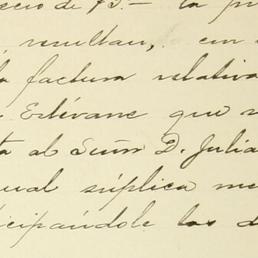 ecio de 73.— la pr
, resultan, em
la factura relativa
Estévanez que
ta al Señor D. Julia
ual súplica me
icipándole los d